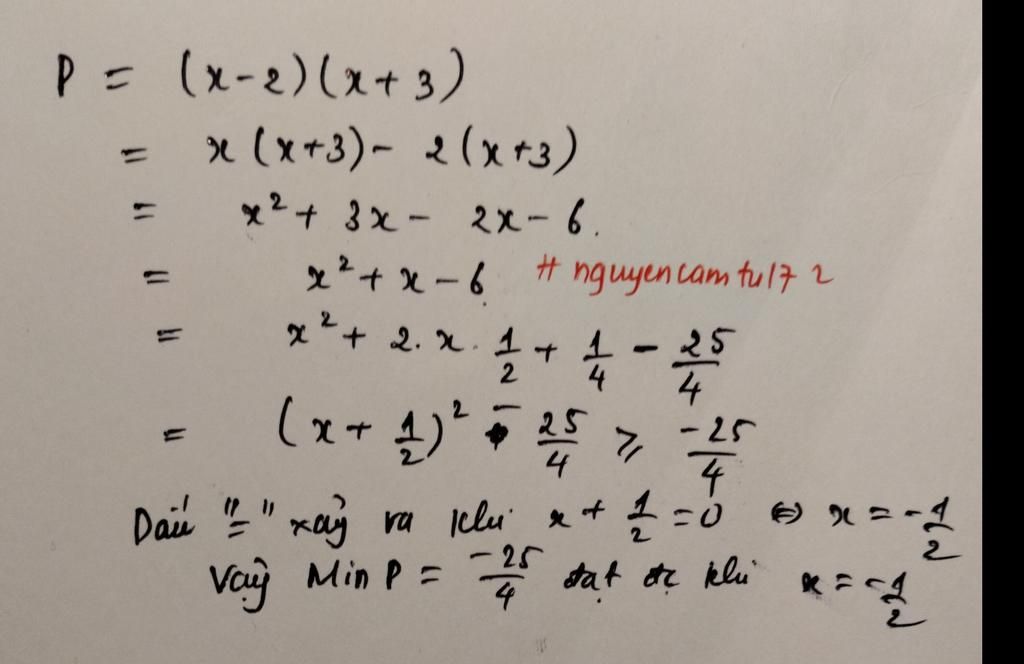 P = (x-2)(x+3)
= x(x+3)- 2(x+3)
= x² + 3x - 2x - 6.
= x² + x - 6 # nguyencamtu172
= x² + 2.x. 1/2 + 1/4 - 25/4
= (x + 1/2)² - 25/4 ≥ -25/4
Dấu "=" xảy ra khi x + 1/2 = 0 ⇔ x = -1/2
Vậy Min P = -25/4 đạt đc khi x = -1/2